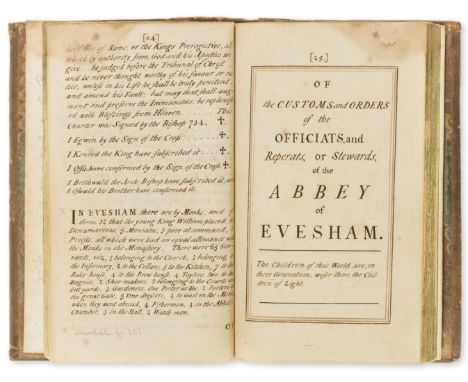 [24]
of Rome, or the Kings Prerogative, all
which by authority from God and his Apostles we
give be judged before the Tribunal of Christ
and be never thought worthy of his favour or no-
tice, unless in his Life he shall be truly penitent,
and amend his Fault; but may that shall aug-
ment and preserve the Immunities, be replenish
ed with Blessings from Heaven. This
Charter was Signed by the Bishop 734. ✝.
I Egwin by the Sign of the Cross ✝.
I Kenred the King have subscribed it ✝.
I Offa have confirmed by the Sign of the Cross. ✝.
I Brithwald the Arch Bishop have subscribed it, and
I Oswald his Brother have confirmed it.
IN EVESHAM there are 67 Monks, and of
them 32 that the young King William placed
5 Moniales, 3 poor at command, 3
Priests, all which were had an equal allowance with
the Monks in the Monastery. There were 65 Ser-
vants, viz, 5 belonging to the Church, 2 belonging to
the Infirmary, 2 to the Cellar, 5 to the Kitchen, 7 to the
Bake house, 4 to the Brew house, 4 Taylors, two to the
Bagnio, 2 Shoe makers, 2 belonging to the
out yards, 3 Gardeners, One Porter at the
the great Gate, 5 Vine dressers, 4 to wait on the Monks
when they went abroad, 4 Fishermen, 4 in the Abbots
Chamber, 3 in the Hall, 2 Watch-men.
[25.]
OF
the CUSTOMS, and ORDERS
of the
OFFICIATS, and
Reperats, or Stewards,
of the
ABBEY
of
EVESHAM.
The Children of this World are, in
their Generation, wiser than the Chil
dren of Light.